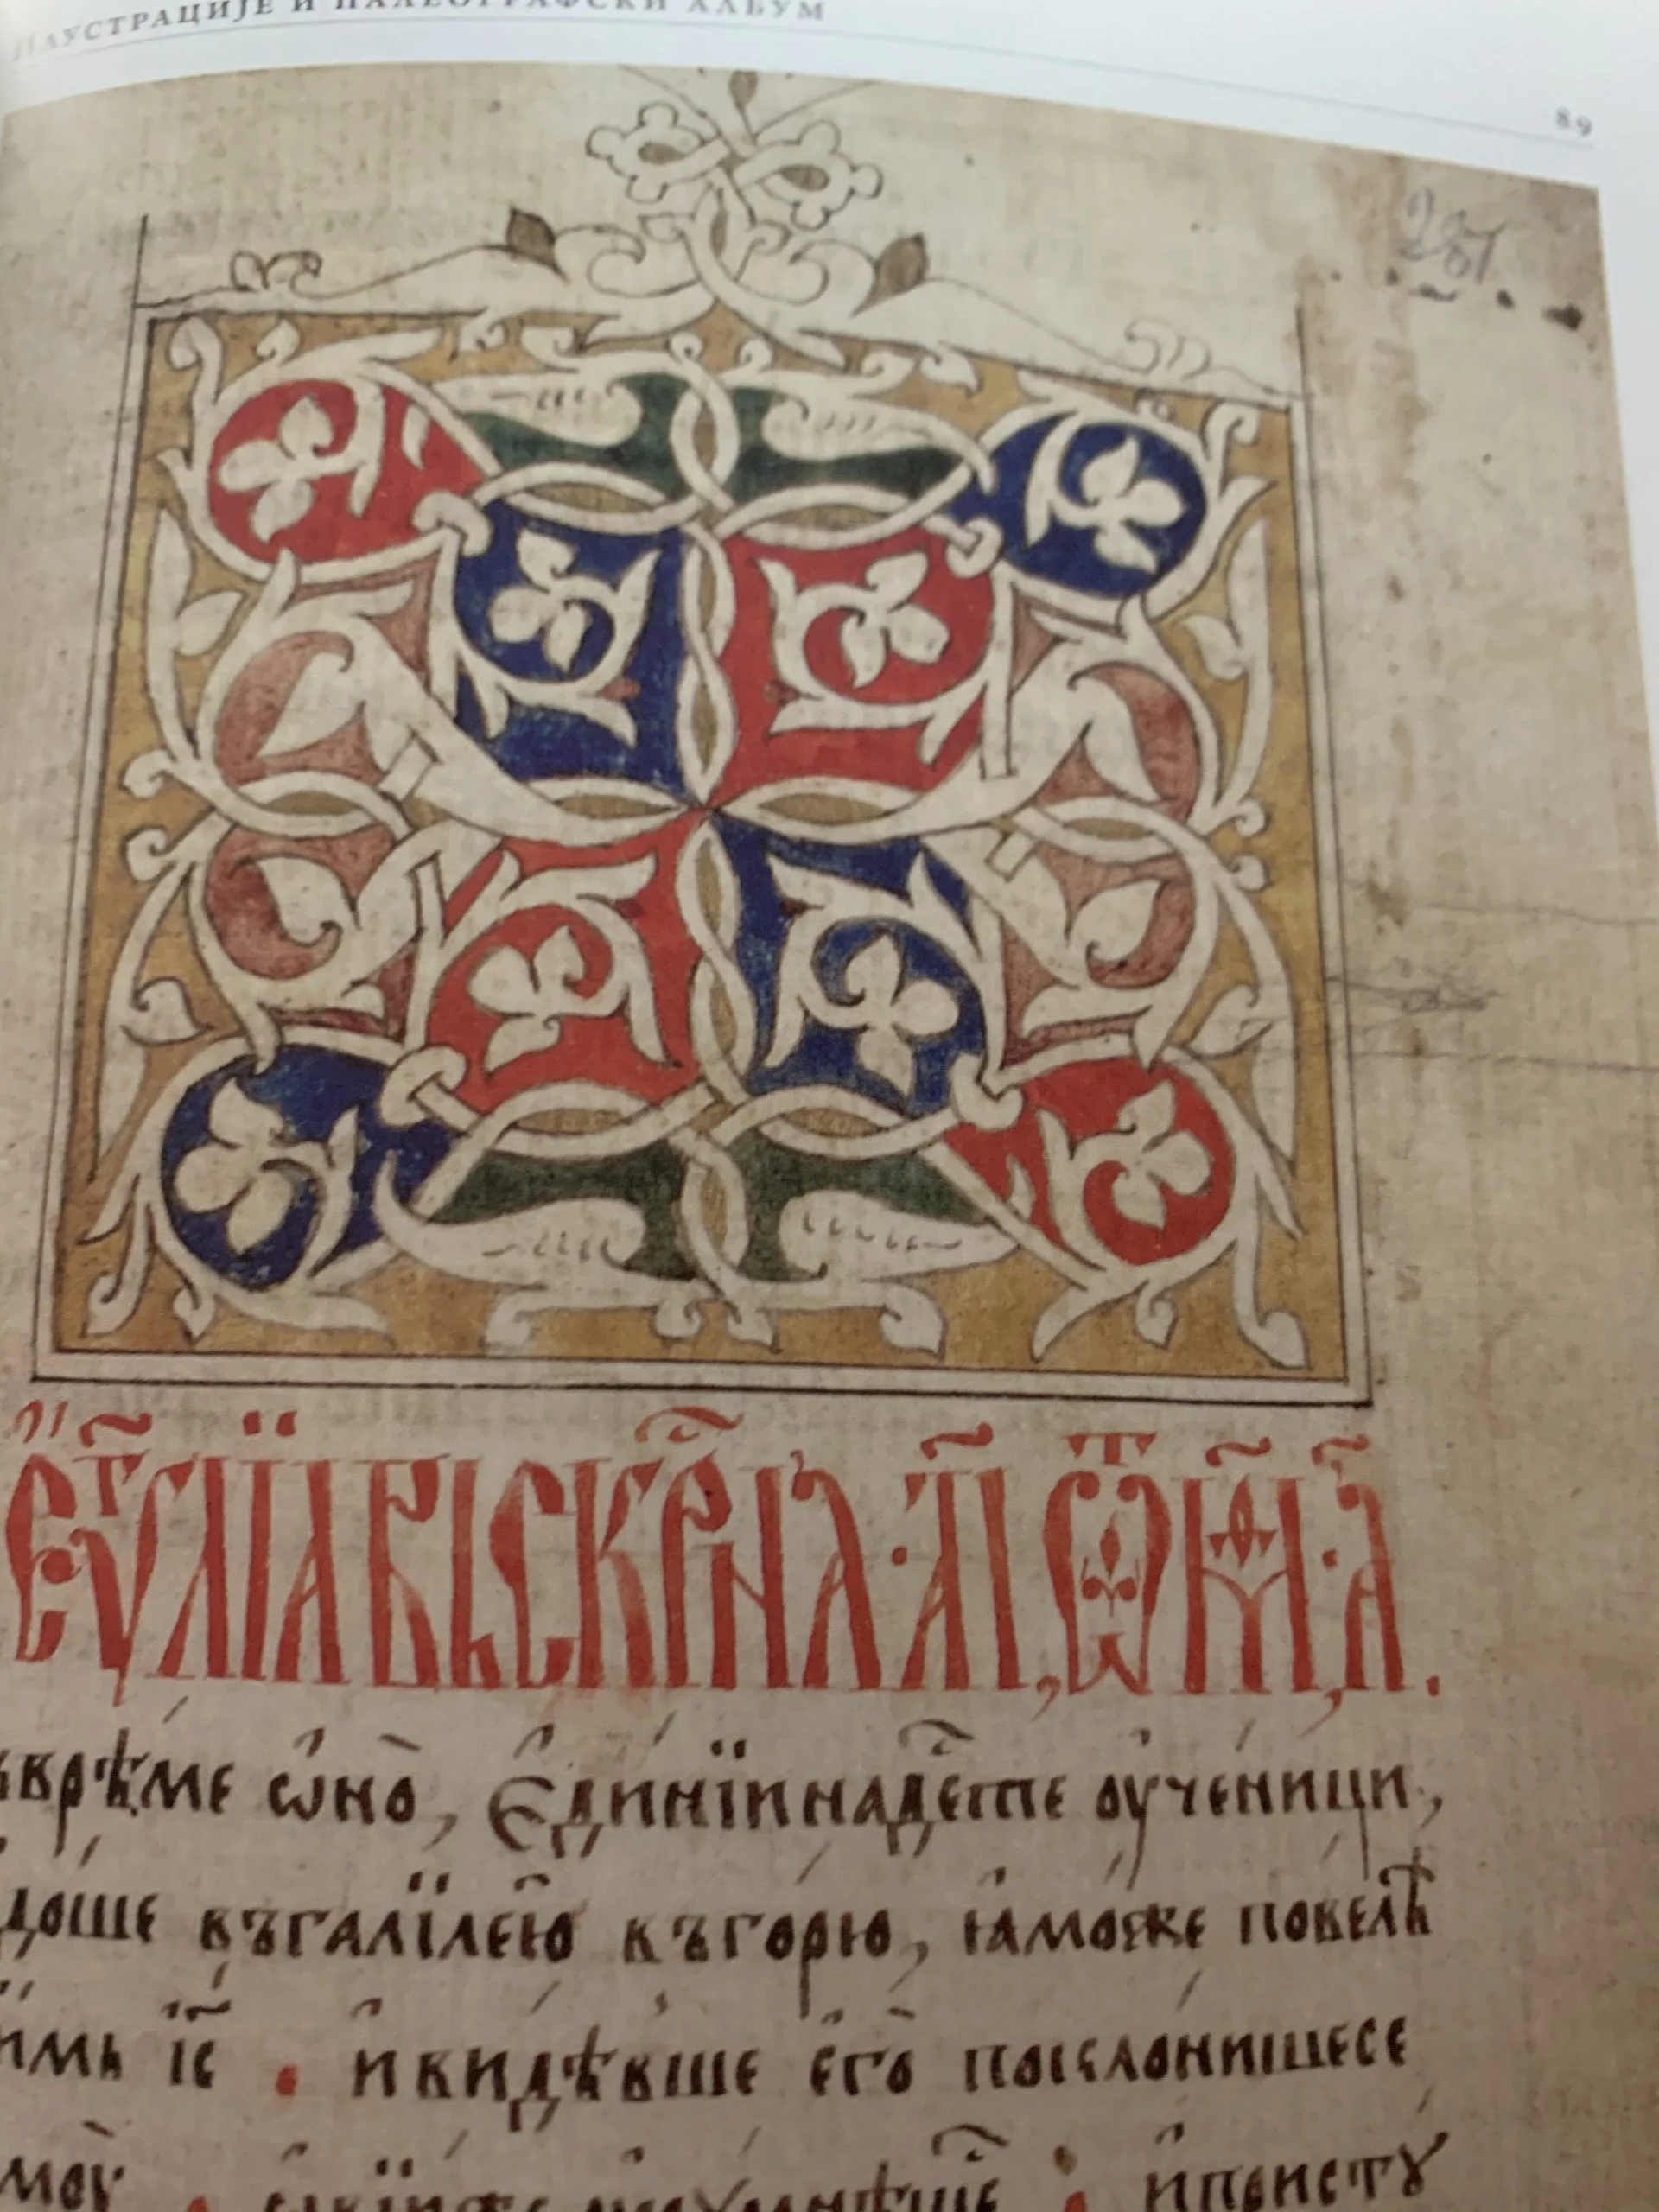 ИЛУСТРАЦИЈЕ И ПАЛЕОГРАФСКИ АЛБУМ
89
ЕѴⷢ҇ЛІА ВЬСКРⷭ҇НА · АІ҃, Ѿ МⷴѲ, А҃.
врѣ́ме ѡ҆но̀, Є҆ди́нїинаде́сте оу҆ченици,
до́ше въгалїле́ю къго́рю, ꙗ҆мо́же повелѣ̀
имь і҆с҃ · и҆видѣ́вше є҆го̀ поклонишесе
моу̀ ·
и҆присту